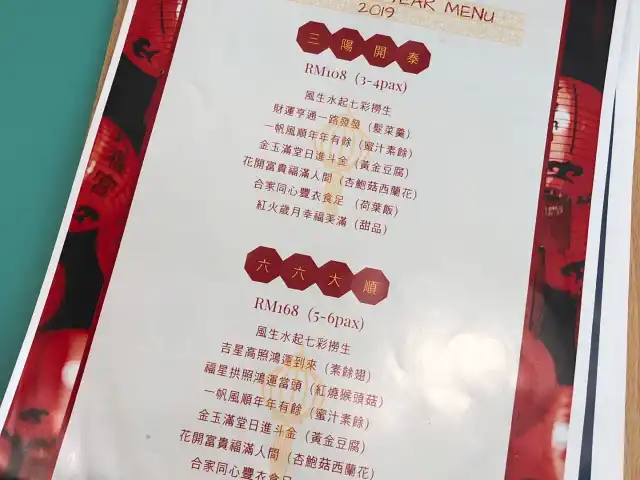 YEAR MENU
2019
三陽開泰
RM108 (3-4pax)
風生水起七彩撈生
財運亨通一路發發（髮菜羹）
一帆風順年年有餘（蜜汁素餘）
金玉滿堂日進斗金（黃金豆腐）
花開富貴福滿人間（杏鮑菇西蘭花）
合家同心豐衣食足（荷葉飯）
紅火歲月幸福美滿（甜品）
六六大順
RM168 (5-6pax)
風生水起七彩撈生
吉星高照鴻運到來（素餘翅）
福星拱照鴻運當頭（紅燒猴頭菇）
一帆風順年年有餘（蜜汁素餘）
金玉滿堂日進斗金（黃金豆腐）
花開富貴福滿人間（杏鮑菇西蘭花）
合家同心豐衣食足